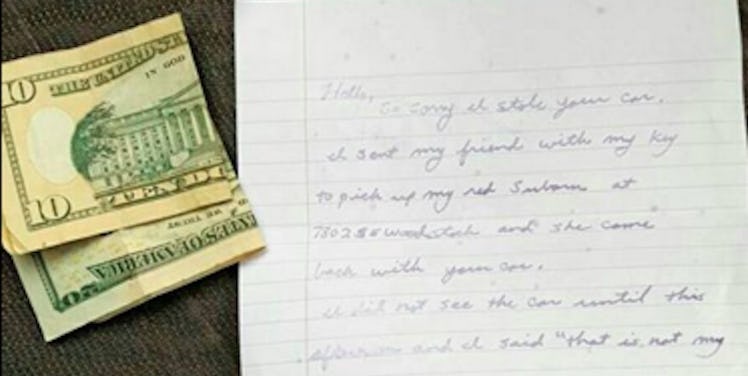 THE UNITED S
IN GOD
10
10
TEN DO
WE TRUST
STATES OF AMERICA
Hello,
So sorry I stole your car.
I sent my friend with my key
to pick up my red Subaru at
7802 SE Woodstock and she came
back with your car.
I did not see the car until this
afternoon and I said "that is not my